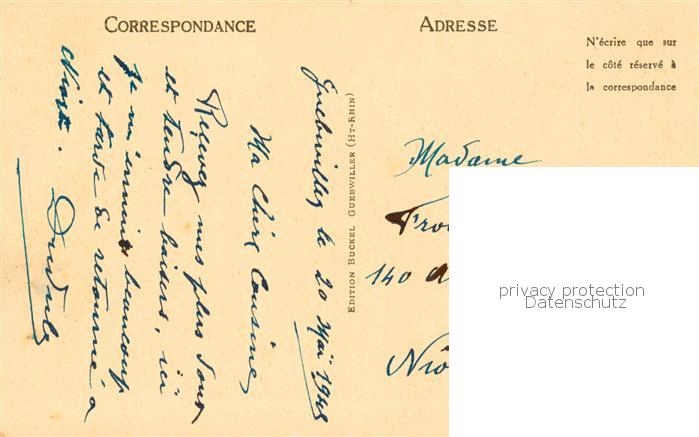 CORRESPONDANCE
ADRESSE
N'écrire que sur
le côté réservé à
la correspondance
Guebwiller le 20 Mai
Ma Chère Cousine,
Recevez mes plus doux
et tendre baisers, ici
Je m'ennuie beaucoup
et tarde de retourné a
Niort.
EDITION BUCKEL GUEBWILLER (HT-RHIN)
Madame
140
privacy protection
Datenschutz